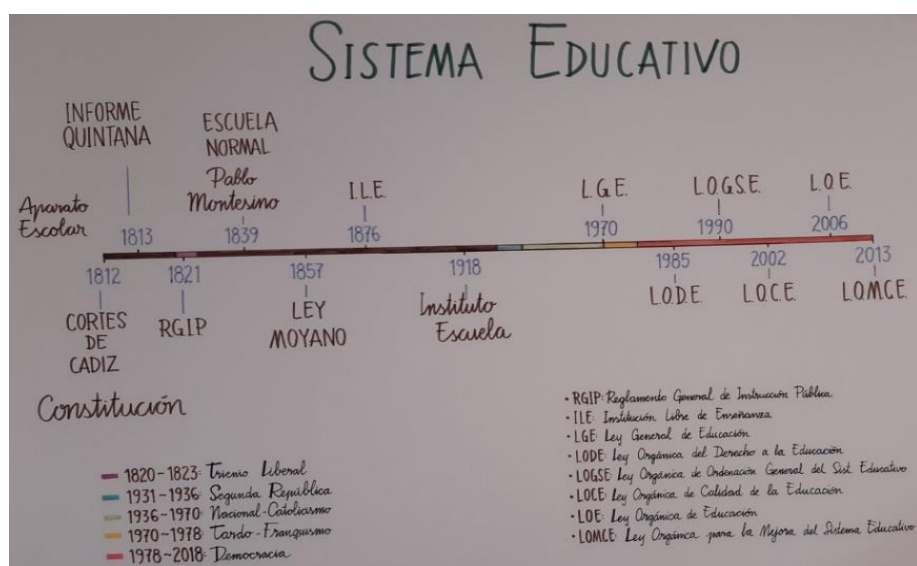 SISTEMA EDUCATIVO
INFORME
QUINTANA
ESCUELA
NORMAL
Pablo
Montesino
I.L.E.
L.G.E.
L.O.G.S.E.
L.O.E.
Aparato
Escolar
1813
1839
1876
1970
1990
2006
1812
1821
1857
1918
1985
2002
2013
CORTES
DE
CADIZ
RGIP
LEY
MOYANO
Instituto
Escuela
L.O.D.E.
L.O.C.E.
LOMCE
Constitución
1820-1823: Trienio Liberal
1931-1936: Segunda República
1936-1970: Nacional-Catolicismo
1970-1978: Tardo-Franquismo
1978-2018: Democracia
· RGIP: Reglamento General de Instrucción Pública
· ILE: Institución Libre de Enseñanza
· LGE: Ley General de Educación
· LODE: Ley Orgánica del Derecho a la Educación
· LOGSE: Ley Orgánica de Ordenación General del Sist. Educativo
· LOCE: Ley Orgánica de Calidad de la Educación
· LOE: Ley Orgánica de Educación
· LOMCE: Ley Orgánica para la Mejora del Sistema Educativo